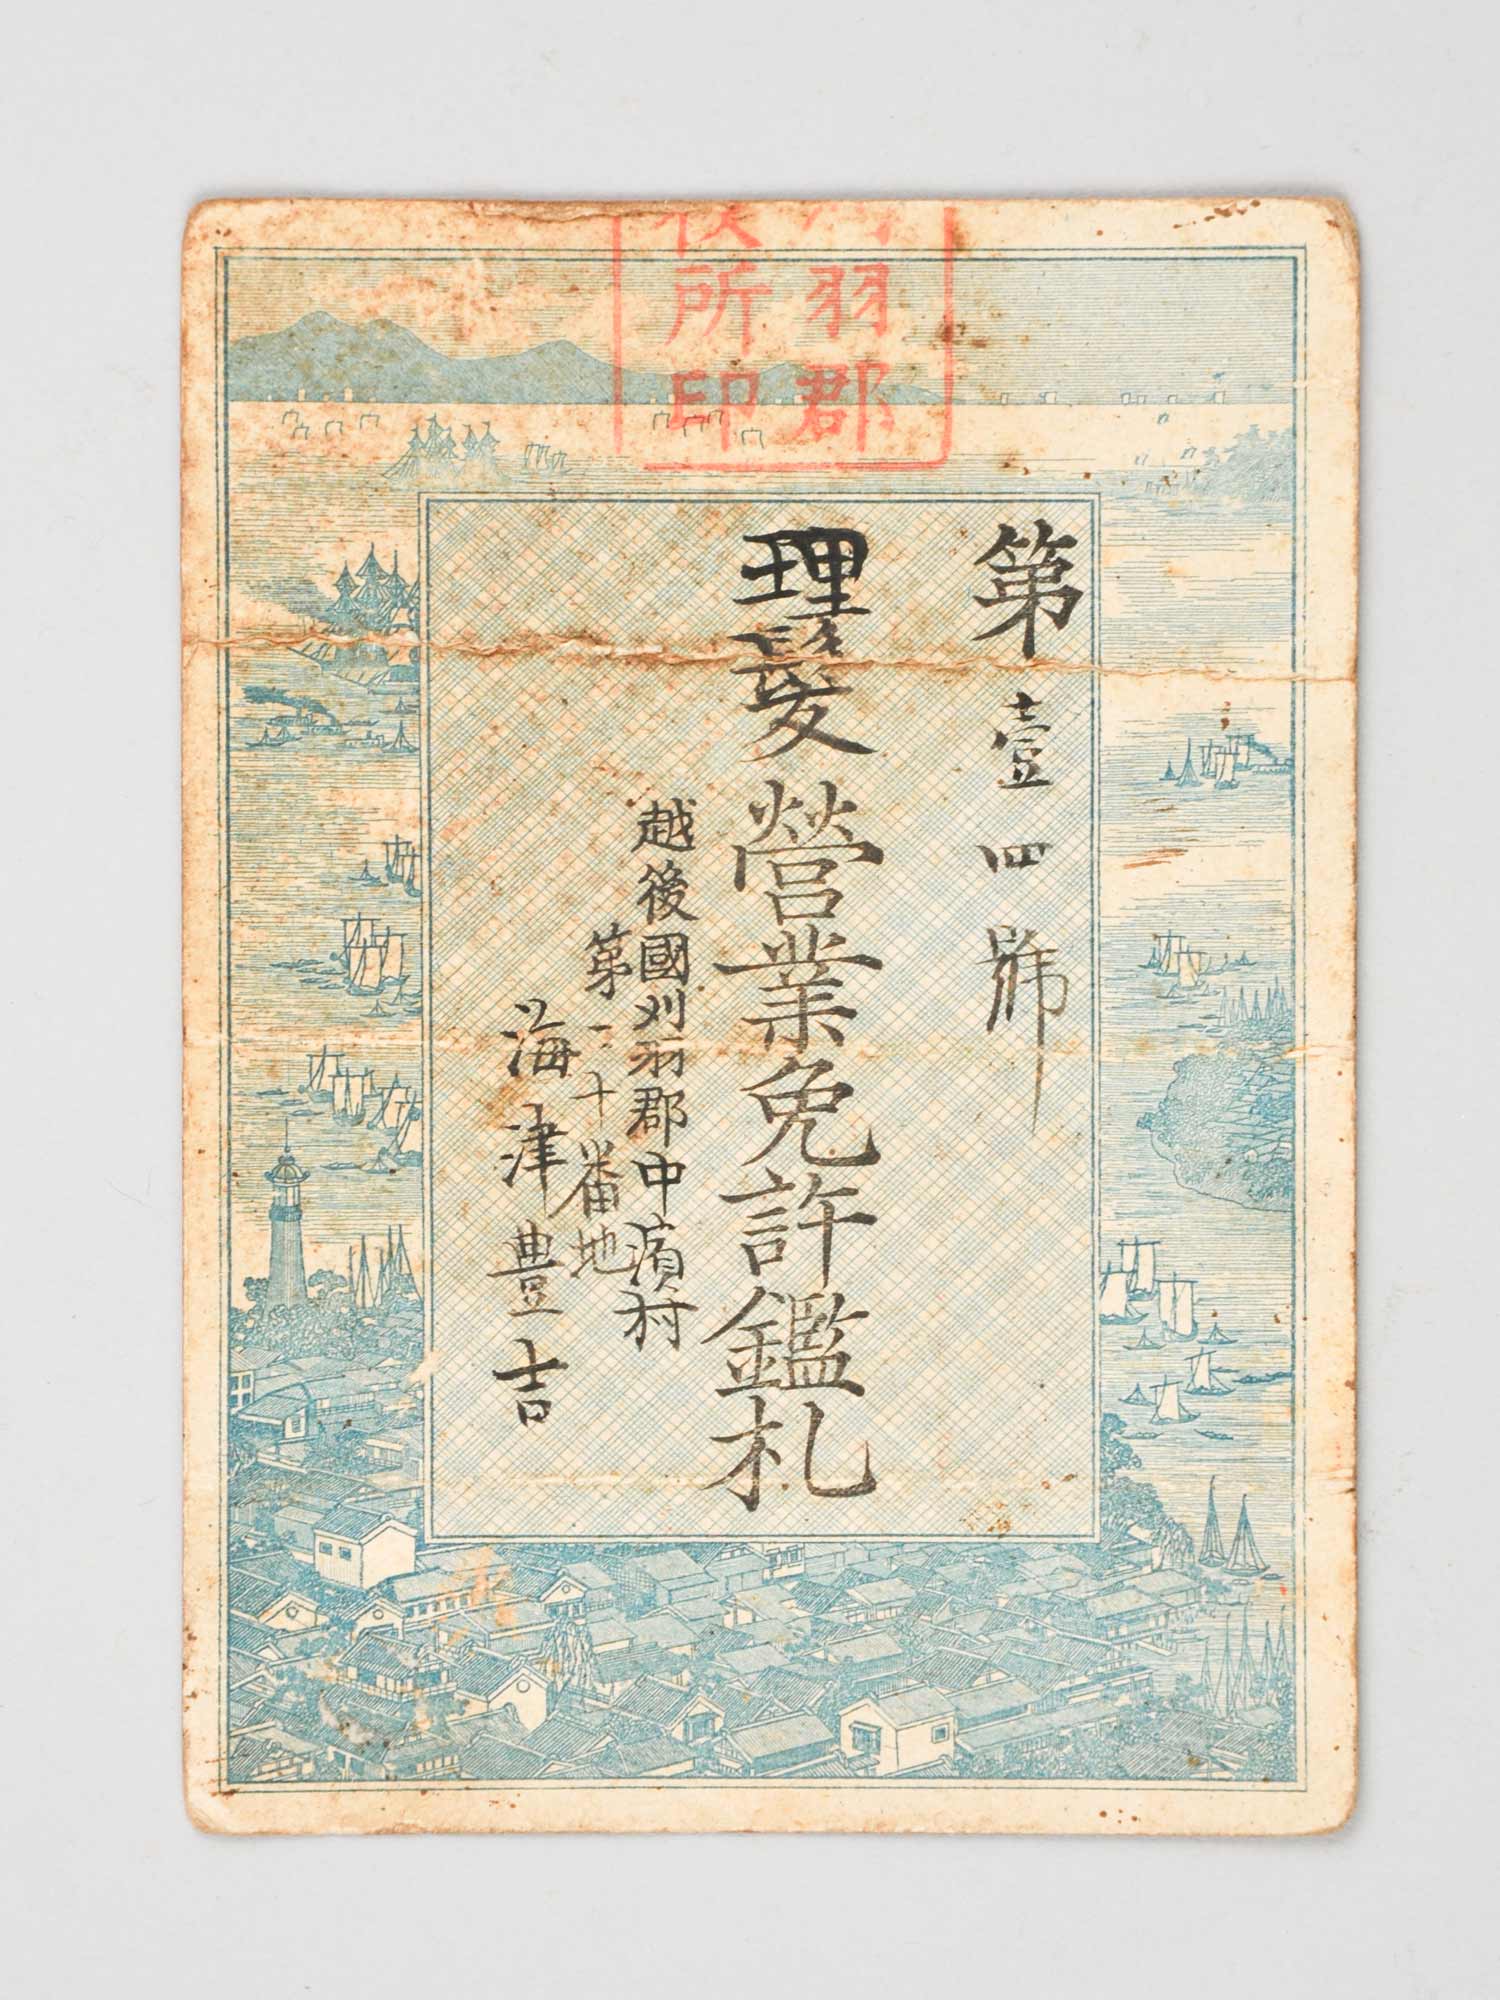 羽郡
所印
第壹四號
理髪營業免許鑑札
越後國刈羽郡中濱村
第二十番地
海津豊吉